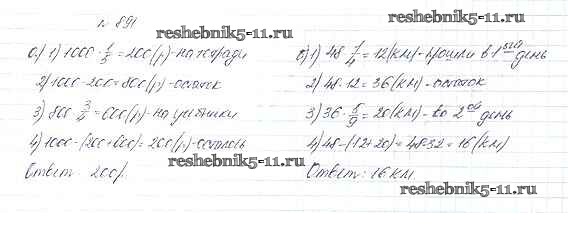 № 891
reshebnik5-11.ru
а) 1) 1000 · 1/5 = 200 (р) - на тетради
2) 1000 - 200 = 800 (р) - остаток
3) 800 · 3/4 = 600 (р) - на учебники
4) 1000 - (200 + 600) = 200 (р) - осталось
reshebnik5-11.ru
Ответ: 200 р.
reshebnik5-11.ru
б) 1) 48 · 1/4 = 12 (км) - прошли в 1ый день
2) 48 - 12 = 36 (км) - остаток
3) 36 · 5/9 = 20 (км) - во 2ой день
4) 48 - (12 + 20) = 48 - 32 = 16 (км)
Ответ: 16 км.
reshebnik5-11.ru